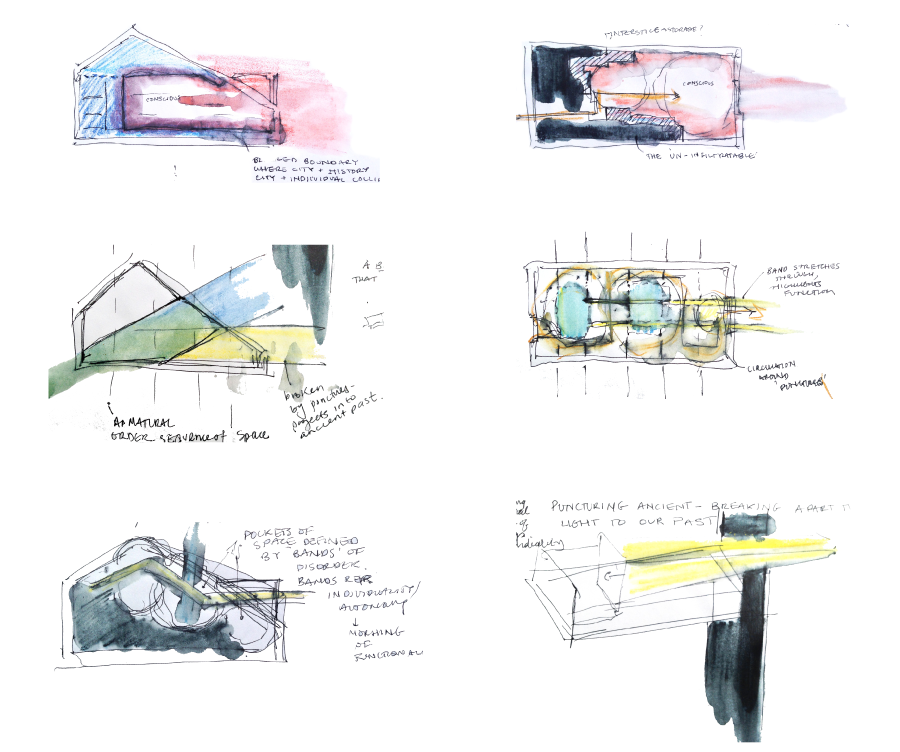 CONSCIOUS
BOUNDARY
WHERE CITY + HISTORY
CITY + INDIVIDUAL COLLI
INTERSTICE STORAGE?
CONSCIOUS
THE 'UN-INFILTRATABLE'
A NATURAL
ORDER SEQUENCE OF SPACE
THAT
broken
by puncture-
projects into
ancient past.
BAND STRETCHES
THROUGH,
FUNCTION
CIRCULATION
AROUND
'PUNCTURES'
POCKETS OF
SPACE DEFINED
BY 'BANDS' OF
DISORDER.
BANDS REP.
INDIVIDUALITY/
AUTONOMY
↓
MORPHING
OF
FUNCTIONAL
PUNCTURING ANCIENT - BREAKING APART IT
LIGHT TO OUR PAST